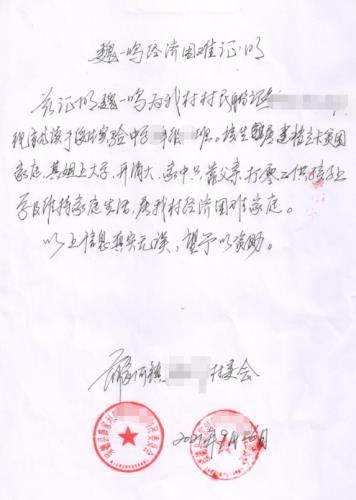 魏一鸣经济困难证明
兹证明魏一鸣为我村村民身份证
现就读于 实验中学 班。该生属建档立卡贫困
家庭，其姐上大学，开消大，家中只靠父亲打零工供孩子上
学及维持家庭生活，属我村经济困难家庭。
以上信息真实无误，望予以资助。
镇 村委会
2021年9月 日